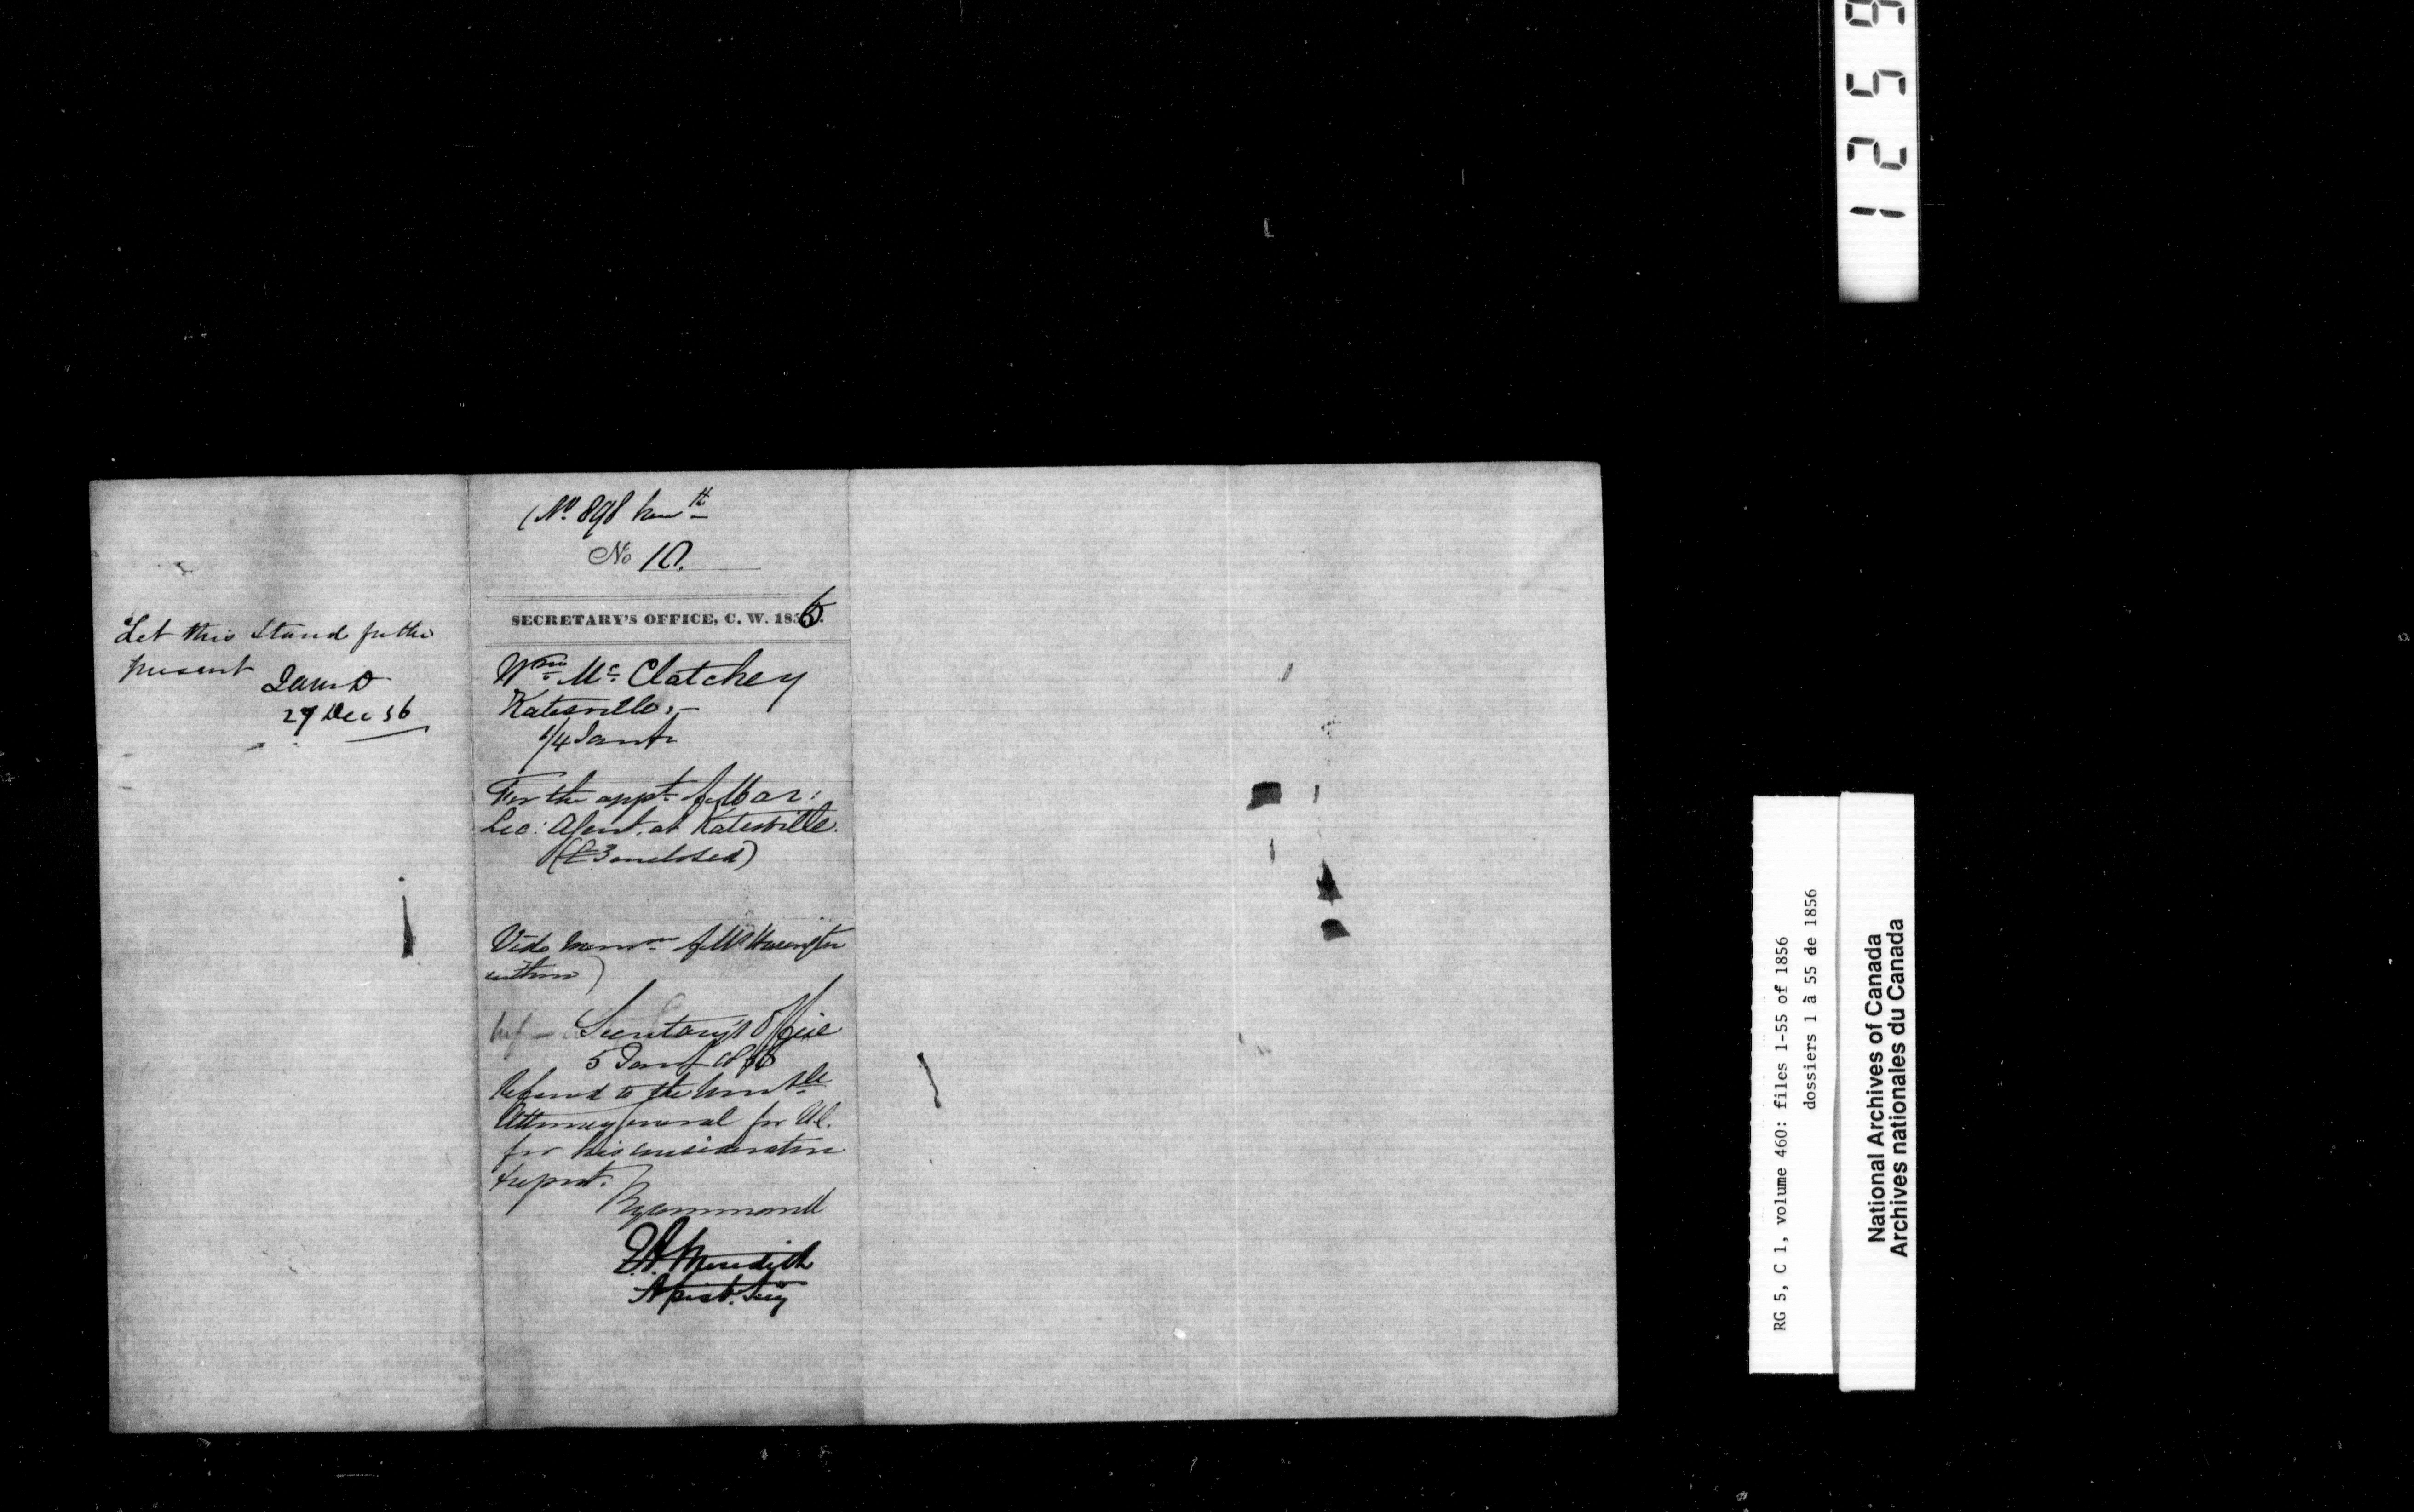 Let this stand for the
present
JAMcD
27 Dec 56
(No. 898 herewth
No 10.
SECRETARY'S OFFICE, C. W. 1856.
Wm. Mc. Clatchey
Katesville,-
4 Jany
For the appt. of Mar:
Lic: Agent at Katesville.
(£3 enclosed)
Vide memm. of Mr Harington
within)
Ref - Secretary's Office
5 Jany 1856
Referred to the Honble
Attorney General for U.C.
for his consideration
& report.
By command
E.A. Meredith
Assist. Secy
1 2 5 9
RG 5, C 1, volume 460: files 1-55 of 1856
dossiers 1 à 55 de 1856
National Archives of Canada
Archives nationales du Canada